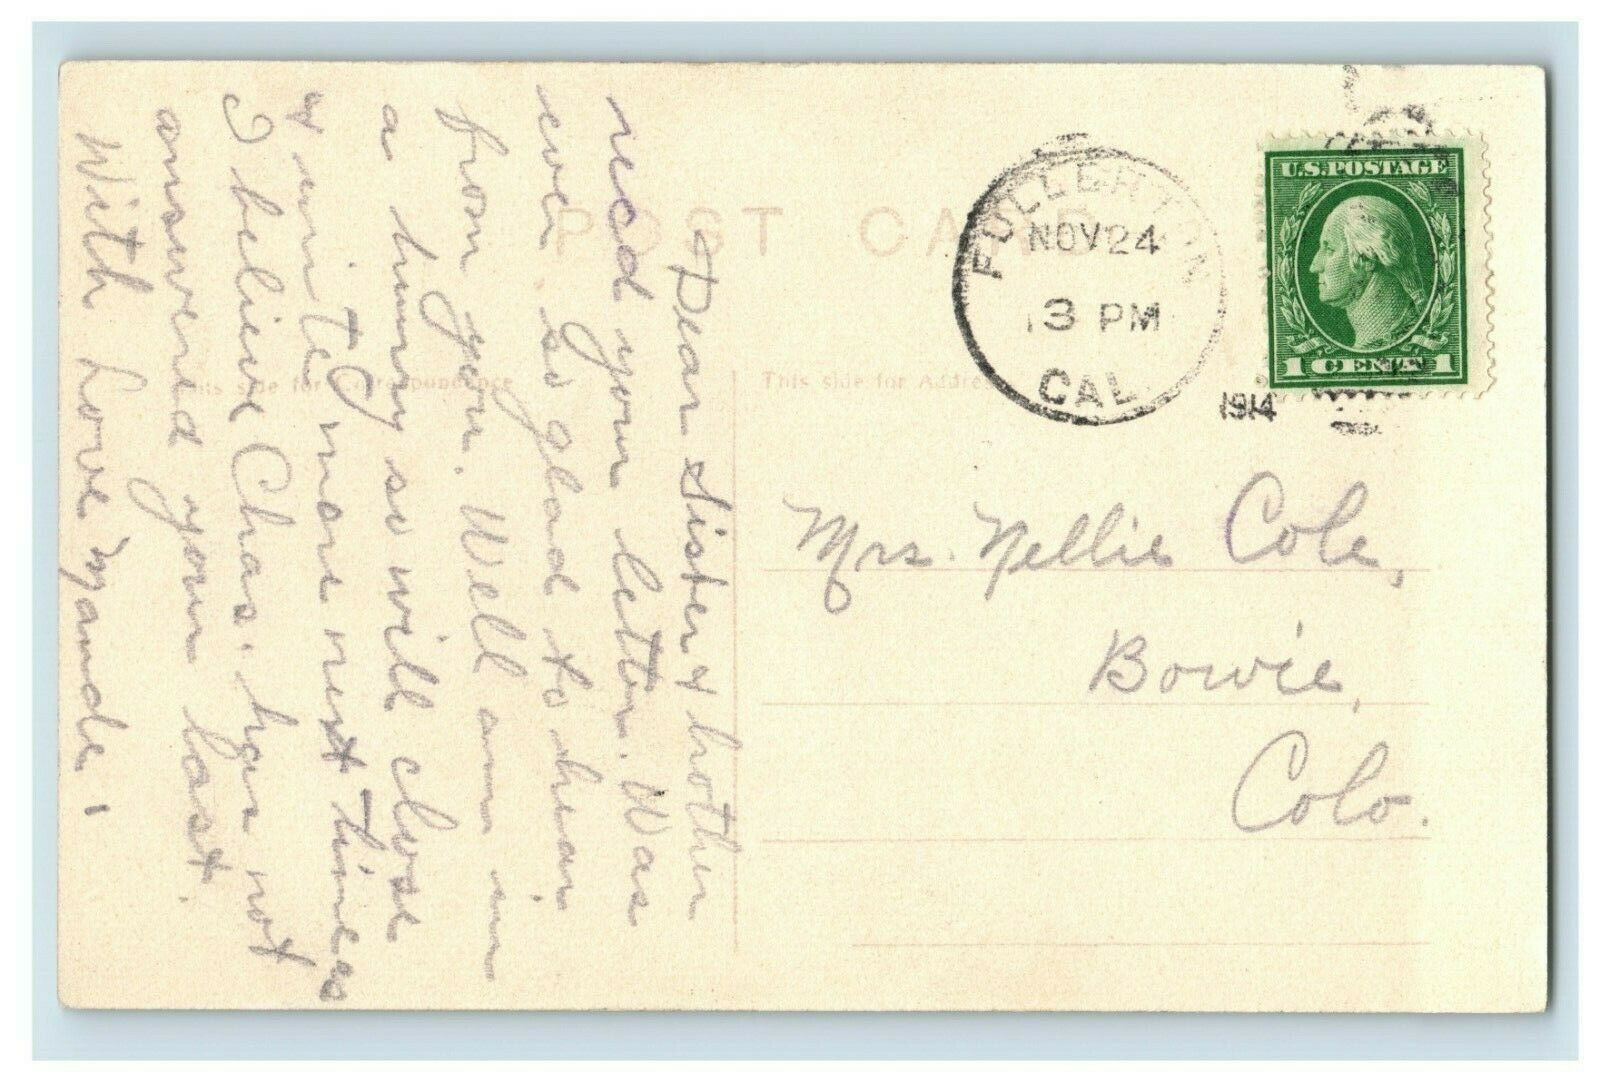 POST CARD
This side for Correspondence
This side for Address
FULLERTON
NOV 24
3 PM
CAL.
1914
U.S. POSTAGE
1 CENT 1
Mrs. Nellie Cole,
Bowie,
Colo.
Dear Sister & brother
recd your letter. Was
ever so glad to hear
from you. Well am in
a hurry so will close
& write more next time
I believe Chas. has not
answered your last.
With Love Mamde.